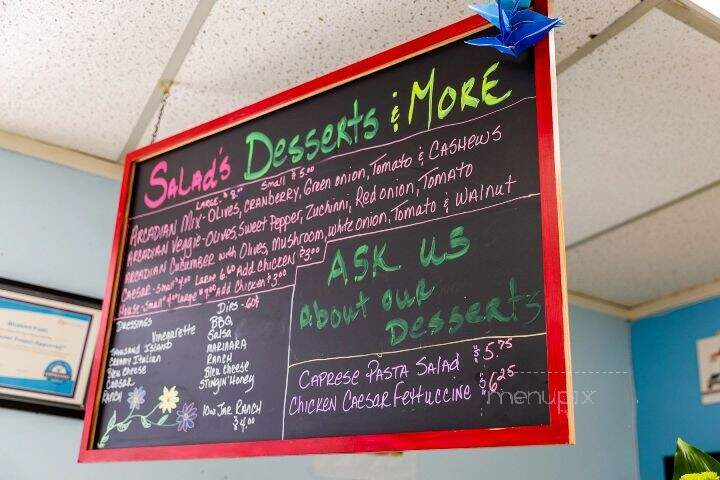 SALAD'S DESSERTS & MORE
LARGE - $ 8.00 Small $ 5.00
ARCADIAN MIX - OLIVES, CRANBERRY, GREEN ONION, TOMATO & CASHEWS
ARCADIAN VEGGIE - OLIVES, SWEET PEPPER, ZUCHINNI, RED ONION, TOMATO
ARCADIAN CUCUMBER with OLIVES, MUSHROOM, WHITE ONION, TOMATO & WALNUT
CAESAR - SMALL $4.00 LARGE 6.60 ADD CHICKEN $3.00
HOUSE - SMALL $4.00 LARGE $7.00 ADD CHICKEN $3.00
ASK US
About our
Desserts
Dressings
Vinegarette
Thousand Island
Creamy Italian
Bleu Cheese
Caesar
Ranch
Dips - 60¢
BBQ
Salsa
MARINARA
RANCH
Bleu Cheese
STINGIN' HONEY
10oz JAR RANCH
$4.00
CAPRESE PASTA SALAD $5.75
CHICKEN CAESAR FETTUCCINE $6.25
menupix